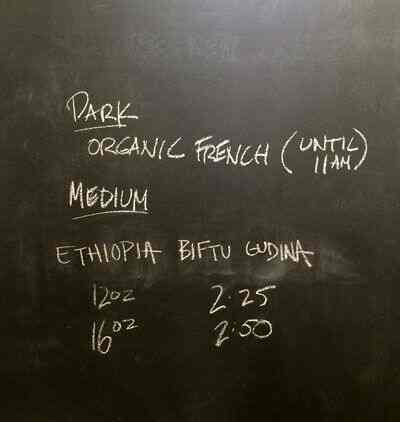 DARK
ORGANIC FRENCH (UNTIL 11AM)
MEDIUM
ETHIOPIA BIFTU GUDINA
12OZ 2.25
16OZ 2.50